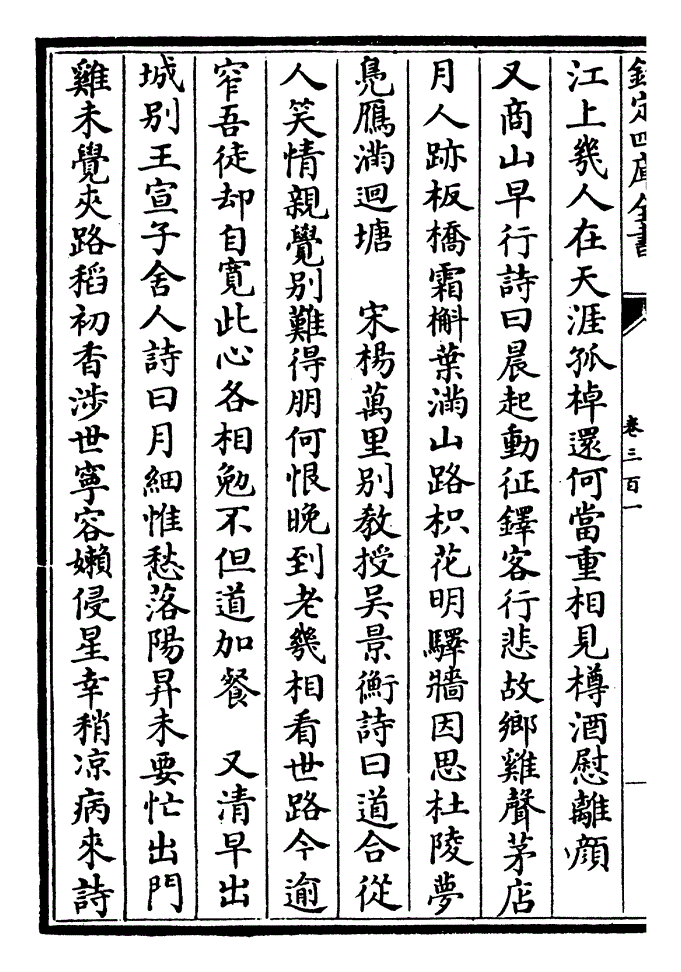 欽定四庫全書
卷三百一
江上幾人在天涯孤棹還何當重相見樽酒慰離顔
又商山早行詩曰晨起動征鐸客行悲故鄉雞聲茅店
月人跡板橋霜槲葉滿山路枳花明驛牆因思杜陵夢
鳧鴈滿迴塘　宋楊萬里别教授吴景衡詩曰道合從
人笑情親覺别難得朋何恨晚到老幾相看世路今逾
窄吾徒却自寛此心各相勉不但道加餐　又清早出
城别王宣子舍人詩曰月細惟愁落陽昇未要忙出門
雞未覺夾路稻初香渉世寧容嬾侵星幸稍凉病來詩